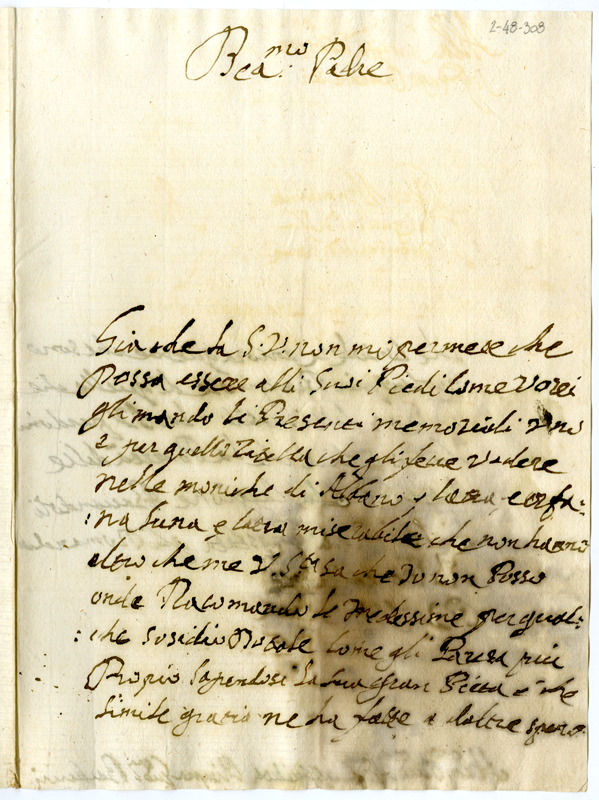 2-48-308
Bea.mo Padre
Gia che la S. V. non mi permete che
Possa essere alli Suoi Piedi come vorei
gli mando li Presenti memoriali uno
è per quella Zitella che gli fece vedere
nelle moniche di Albano, e l'altra e orfa:
:na l'una e l'altra miserabile che non hanno
altro che me V. Sta sa che Io non Posso
onde Racomando le medessime per qual:
:che susidio Dotale come gli Parera più
Propio sapendosi la sua gran Pieta e che
simile gratie ne ha fatte a l'altre spero